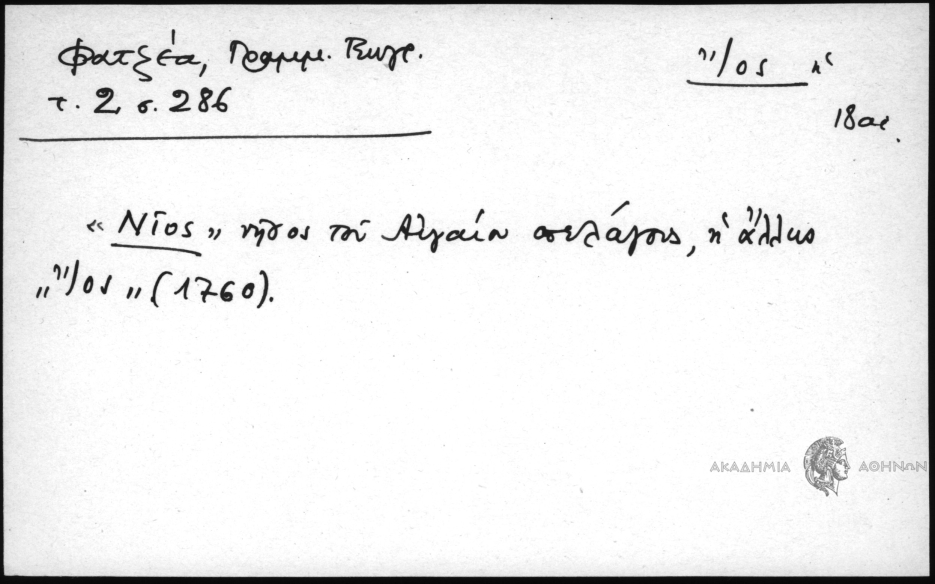 Φατζέα, Γραμμ. Γεωγρ.
τ. 2, σ. 286
Ἴος ἡ
18 αι.
« Νῖος » νῆσος τοῦ Αἰγαίου πελάγους, ἢ ἄλλως
„ Ἴος „ (1760).
ΑΚΑΔΗΜΙΑ ΑΘΗΝΩΝ